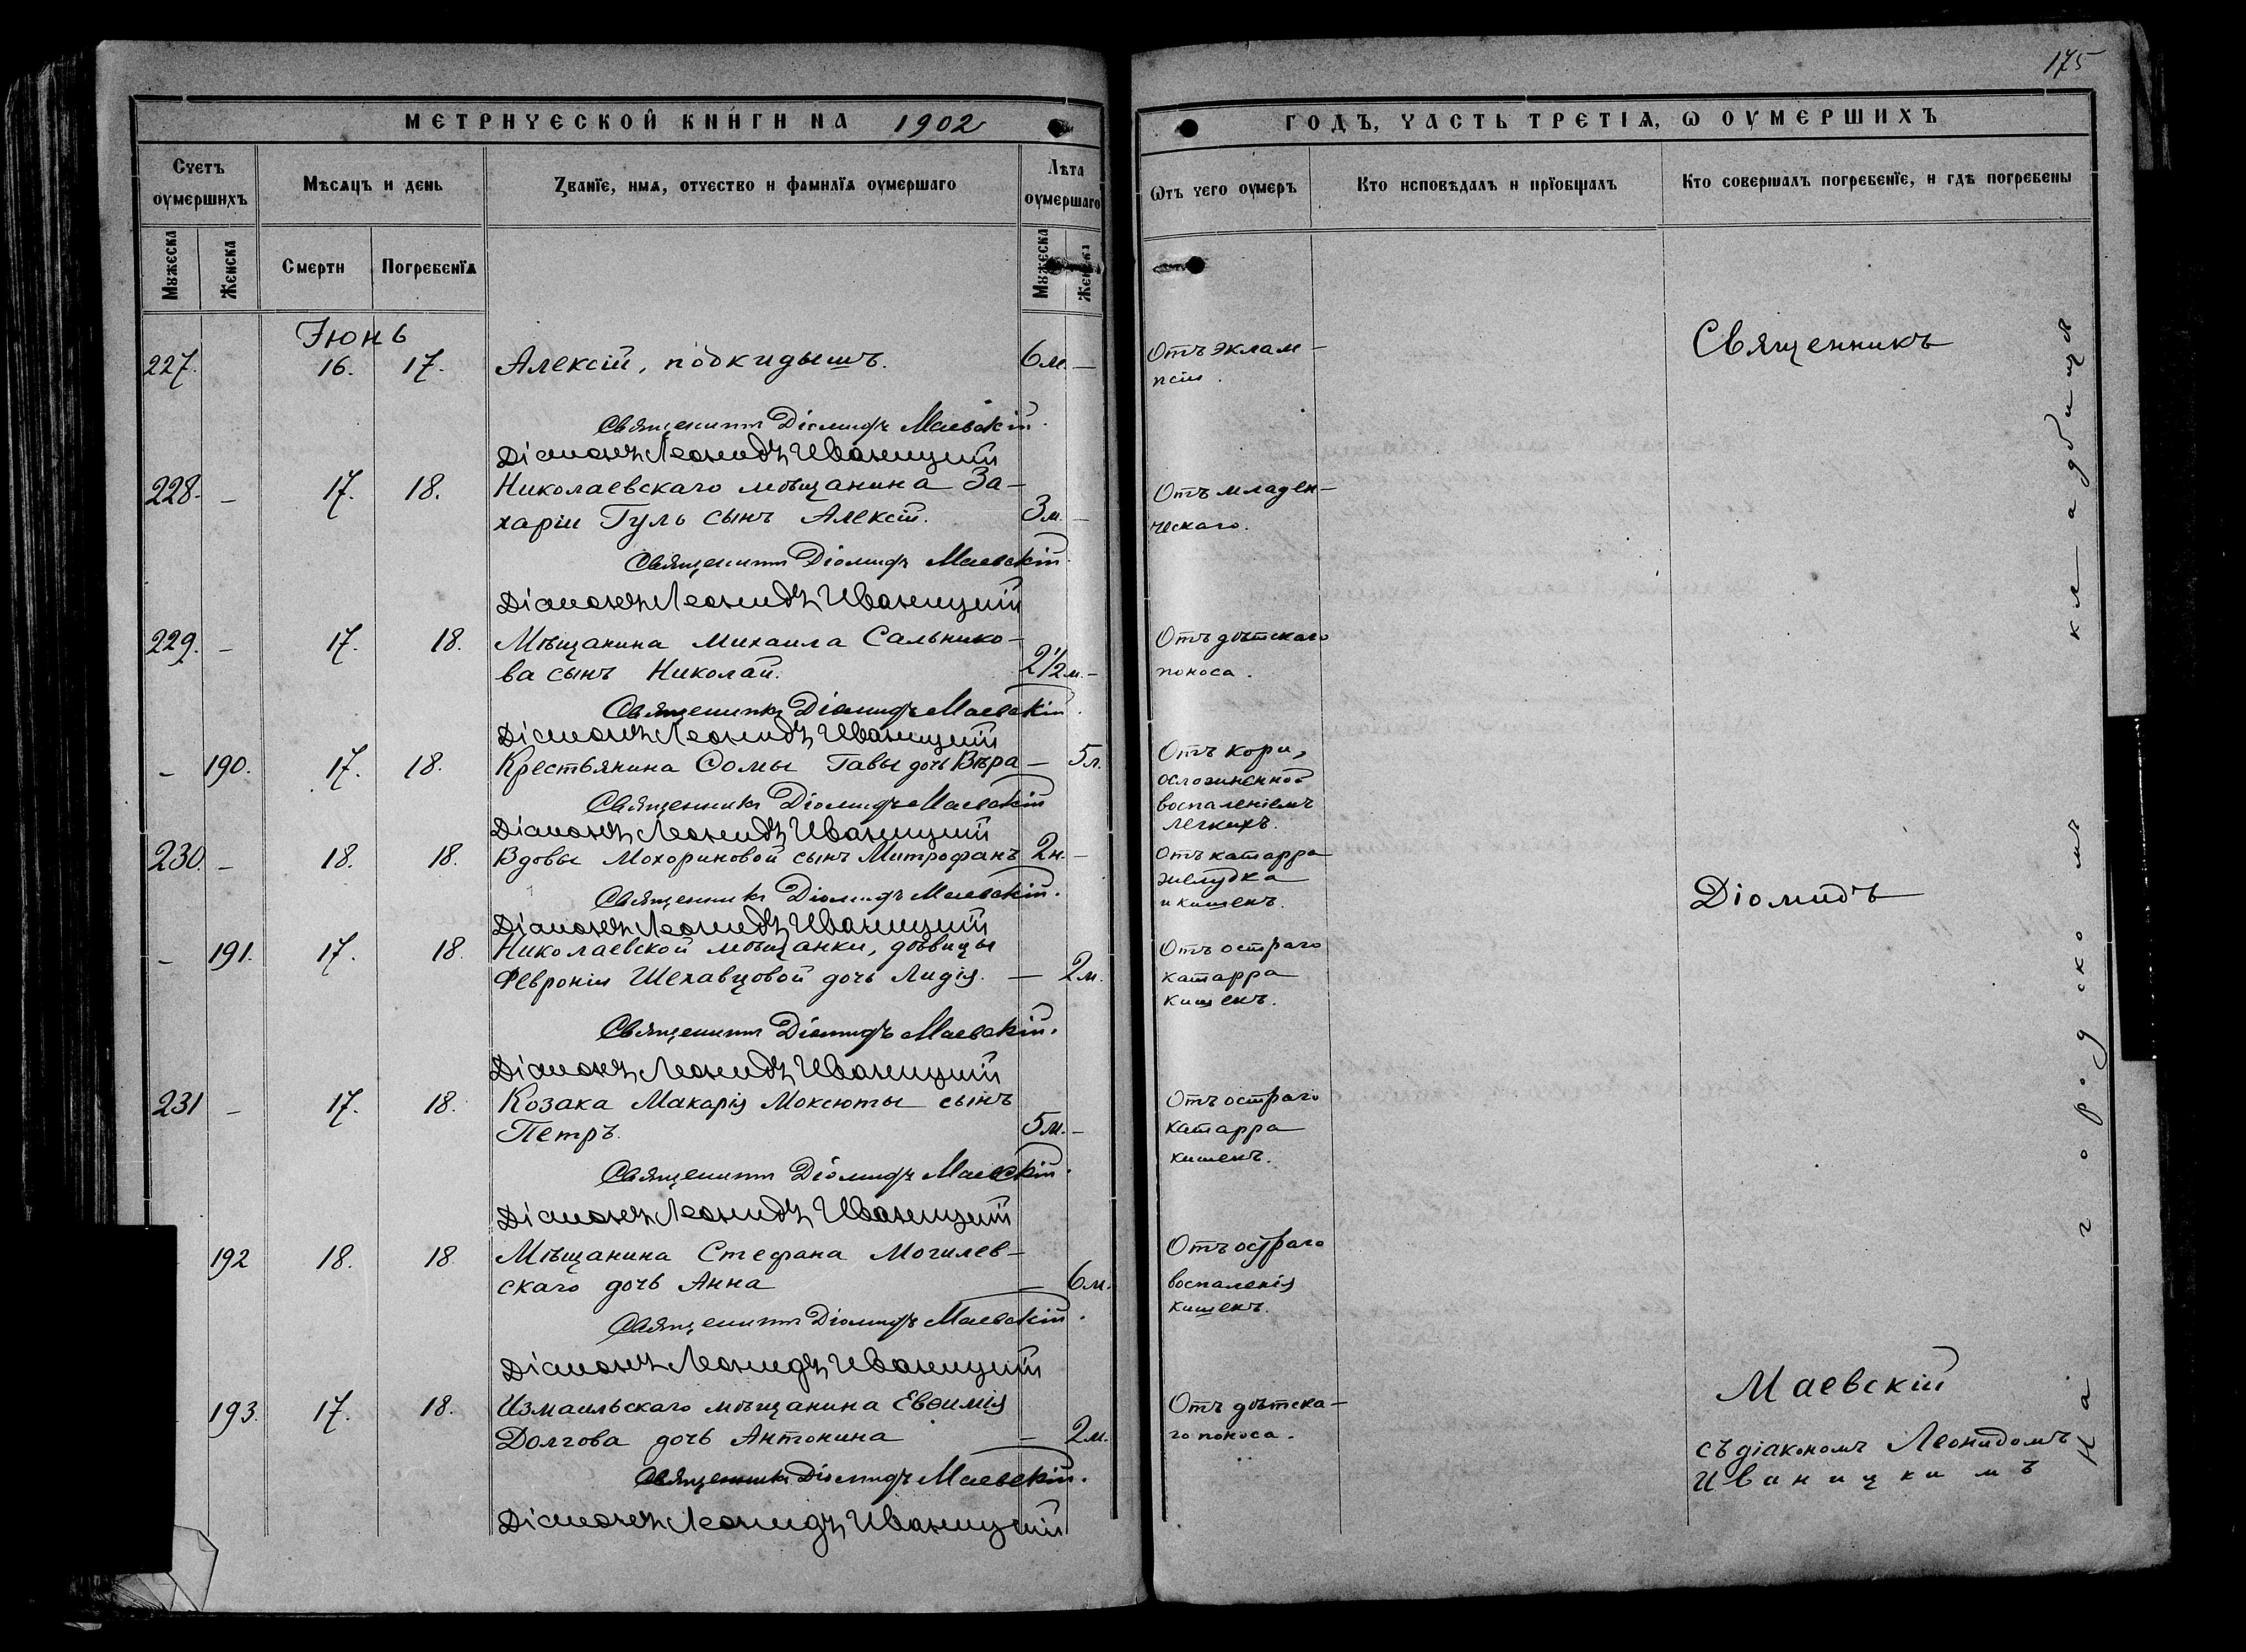 175
МЕТРИЧЕСКОЙ КНИГИ НА 1902
ГОДЪ, ЧАСТЬ ТРЕТІѦ, Ѡ ОУМЕРШИХЪ
Счетъ оумершихъ
Мѣсѧцъ и день
Званїе, имѧ, отчество и фамилїѧ оумершаго
Лѣта оумершаго
Ѿтъ чего оумеръ
Кто исповѣдалъ и прїобщалъ
Кто совершалъ погребенїе, и гдѣ погребены
Мꙋжеска
Женска
Смерти
Погребенїѧ
Мꙋжеска
Женска
Іюнь
227. 16. 17. Алексій, подкидышъ. 6 м. —
Отъ эклам-
псіи.
Священникъ Діомидъ Маевскій.
Діаконъ Леонидъ Иваницкій
228. — 17. 18. Николаевскаго мѣщанина За-
харіи Гуль сынъ Алексій. 3 м. —
Отъ младен-
ческаго.
Священникъ Діомидъ Маевскій.
Діаконъ Леонидъ Иваницкій
229. — 17. 18. Мѣщанина Михаила Сальнико-
ва сынъ Николай. 2½ м. —
Отъ дѣтскаго
поноса.
Священникъ Діомидъ Маевскій.
Діаконъ Леонидъ Иваницкій
— 190. 17. 18. Крестьянина Ѳомы Гавы дочь Вѣра — 5 л.
Отъ кори,
осложненной
воспаленіемъ
легкихъ.
Священникъ Діомидъ Маевскій
Діаконъ Леонидъ Иваницкій
230. — 18. 18. Вдовы Мохориновой сынъ Митрофанъ 2 н. —
Отъ катарра
желудка
и кишекъ.
Священникъ Діомидъ Маевскій.
Діаконъ Леонидъ Иваницкій
— 191. 17. 18. Николаевской мѣщанки, дѣвицы
Февроніи Шехавцовой дочь Лидія. — 2 м.
Отъ остраго
катарра
кишекъ.
Священникъ Діомидъ Маевскій.
Діаконъ Леонидъ Иваницкій
231 — 17. 18. Козака Макарія Моксюты сынъ
Петръ. 5 м. —
Отъ остраго
катарра
кишекъ.
Священникъ Діомидъ Маевскій.
Діаконъ Леонидъ Иваницкій
192 18. 18 Мѣщанина Стефана Могилев-
скаго дочь Анна — 6 м.
Отъ остраго
воспаленія
кишекъ.
Священникъ Діомидъ Маевскій.
Діаконъ Леонидъ Иваницкій
193. 17. 18. Измаильскаго мѣщанина Евѳимія
Долгова дочь Антонина — 2 м.
Отъ дѣтска-
го поноса.
Священникъ Діомидъ Маевскій.
Діаконъ Леонидъ Иваницкій
Священникъ
Діомидъ
Маевскій
съ діакономъ Леонидомъ
Иваницкимъ
На городскомъ кладбищѣ